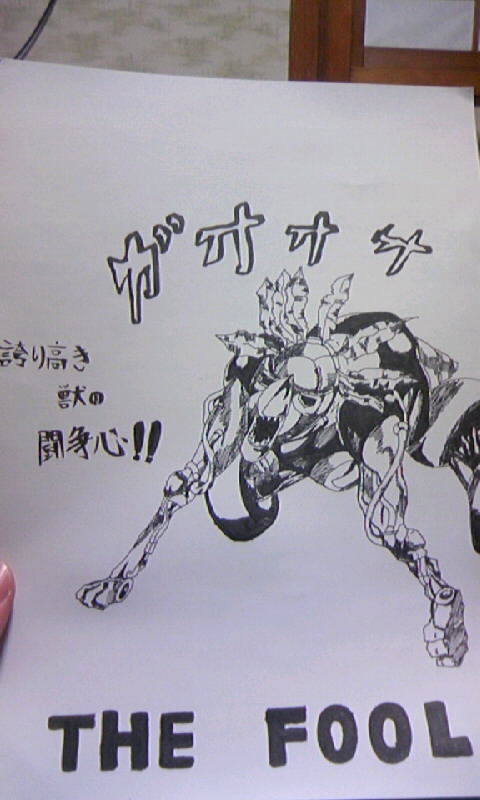 ガオオッ
誇り高き
獣の
闘争心!!
THE FOOL